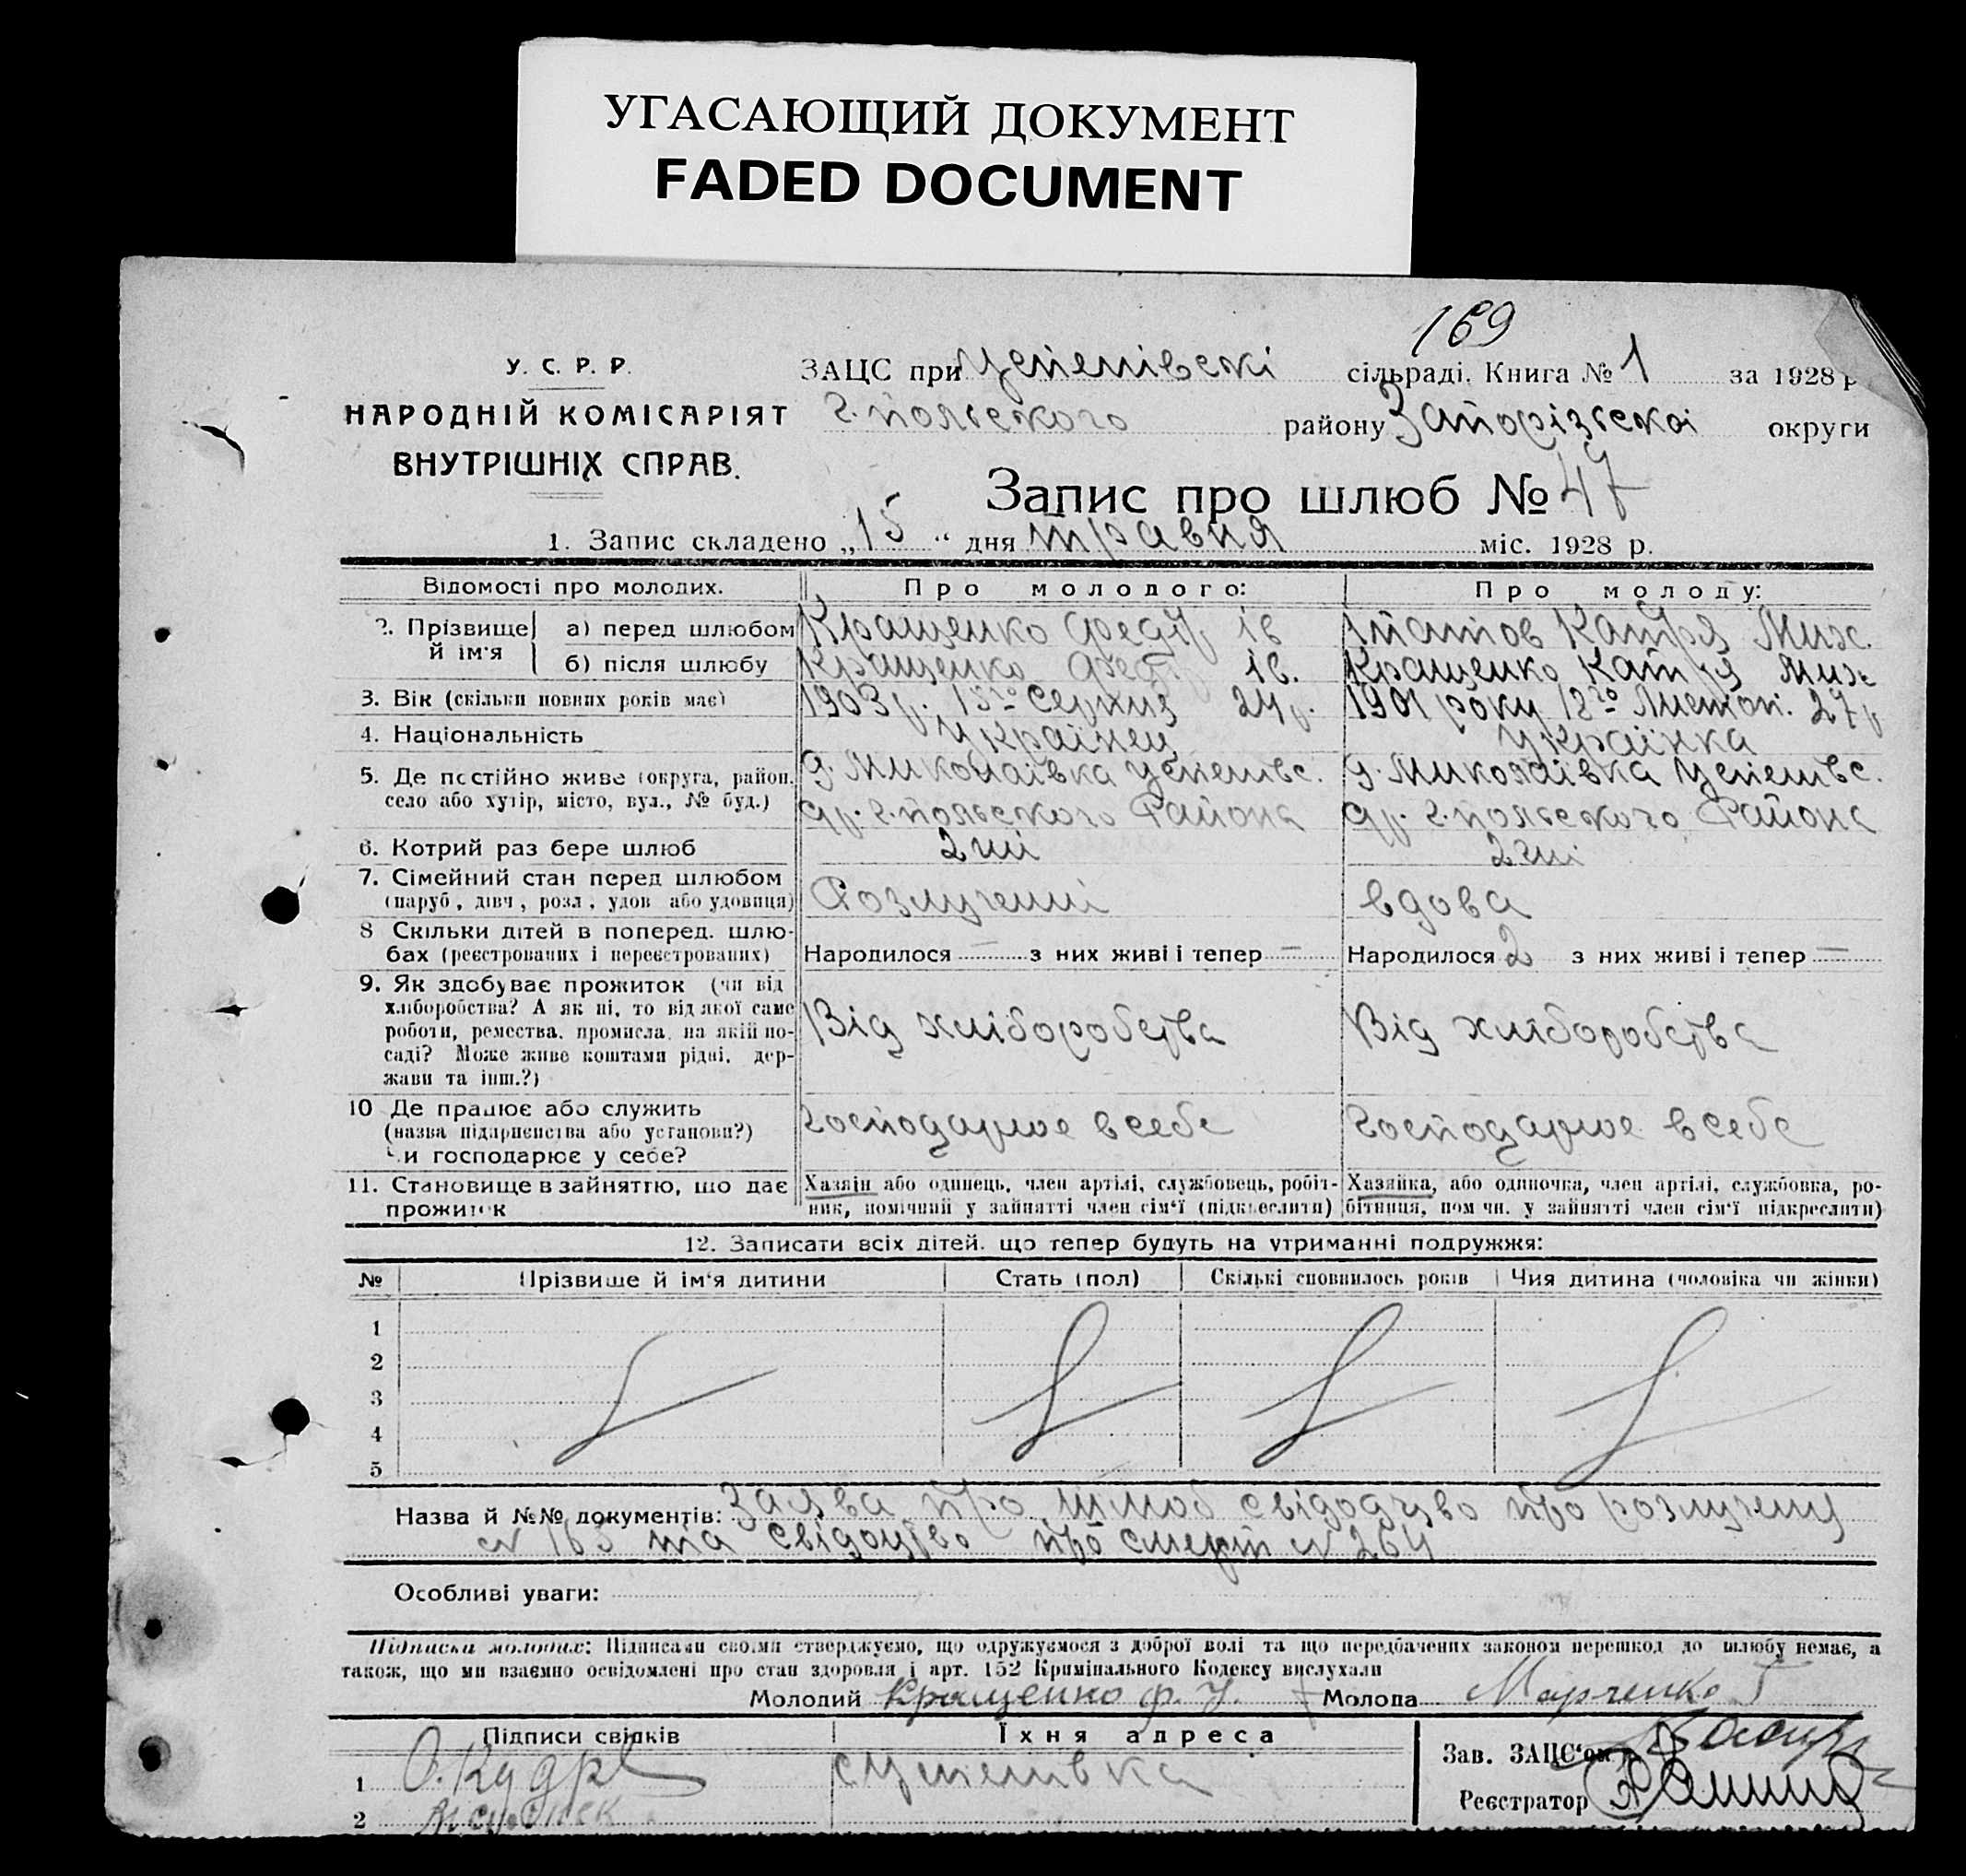 УГАСАЮЩИЙ ДОКУМЕНТ
FADED DOCUMENT
169
У. С. Р. Р.
НАРОДНІЙ КОМІСАРІЯТ
ВНУТРІШНІХ СПРАВ.
ЗАЦС при Успенівскі сільраді. Книга № 1 за 1928 р.
г. польского району Запорізської округи
Запис про шлюб № 47
1. Запис складено „15“ дня травня міс. 1928 р.
Відомості про молодих. Про молодого: Про молоду:
2. Прізвище й ім'я
а) перед шлюбом Кращенко Федір ів Катря Мих.
б) після шлюбу Кращенко Федір ів. Кращенко Катря Мих
3. Вік (скільки повних років має) 1903 р. 15го Серпня 24 р. 1901 року 18го Листоп. 27 р
4. Національність українец українка
5. Де постійно живе (округа, район, село або хутір, місто, вул., № буд.)
д. Миколаївка Успенівс. д. Миколаївка Успенівс.
г. польского Района г. польского Района
6. Котрий раз бере шлюб 2 ий 2 гий
7. Сімейний стан перед шлюбом
(паруб., дівч., розл., удов або удовиця) Розлученні вдова
8 Скільки дітей в поперед. шлюбах (реєстрованих і нереєстрованих)
Народилося — з них живі і тепер — Народилося 2 з них живі і тепер —
9. Як здобуває прожиток (чи від
хліборобства? А як ні, то від якої саме
роботи, ремества, промисла, на якій по-
саді? Може живе коштами рідні, дер-
жави та інш.?)
Від хліборобства Від хліборобства
10 Де працює або служить
(назва підприємства або установи?)
Чи господарює у себе?
Господарює в себе Господарює в себе
11. Становище в зайняттю, що дає прожиток
Хазяїн або одинець, член артілі, службовець, робіт-
ник, помічний у зайнятті член сім'ї (підкреслити)
Хазяйка, або одиночка, член артілі, службовка, ро-
бітниця, помічн. у зайнятті член сім'ї підкреслити)
12. Записати всіх дітей, що тепер будуть на утриманні подружжя:
№ Прізвище й ім'я дитини Стать (пол) Скількі сповнилось років Чия дитина (чоловіка чи жінки)
1
2
3
4
5
Назва й №№ документів: Заява про шлюб свідодцво про розлучену
N 165 та свідоцтво про смерт N 264
Особливі уваги:
Підписи молодих: Підписами своїми стверджуємо, що одружуємося з доброї волі та що передбачених законом перешкод до шлюбу немає, а
також, що ми взаємно освідомлені про стан здоровля і арт. 152 Кримінального Кодексу вислухали
Молодий Кращенко Ф. І. Молода Марченко
Підписи свідків Їхня адреса
1 О. Кудря с Успенівка
2
Зав. ЗАЦС'ом
Реєстратор